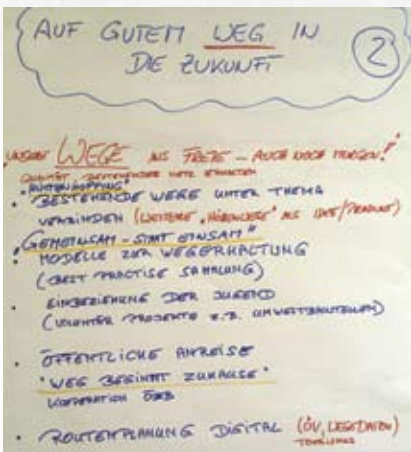 AUF GUTEM WEG IN
DIE ZUKUNFT
2
"UNSERE WEGE INS FREIE – AUCH NOCH MORGEN!"
QUALITÄT, BESTEHENDER NETZ ERHALTEN
"HÜTTENHOPPING"
• BESTEHENDE WEGE UNTER THEMA
VERBINDEN (WEITERE "HÖHENWEGE" ALS IDEE/PRODUKT)
"GEMEINSAM - STATT EINSAM"
• MODELLE ZUR WEGERHALTUNG
(BEST PRACTISE SAMMLUNG)
• EINBEZIEHUNG DER JUGEND
(VOLONTER PROJEKTE Z.B. UMWELTBAUSTELLEN)
• ÖFFENTLICHE ANREISE
"WEG BEGINNT ZUHAUSE"
KOOPERATION ÖBB
• ROUTENPLANUNG DIGITAL (ÖV, WEGEDATEN)
TOURISMUS